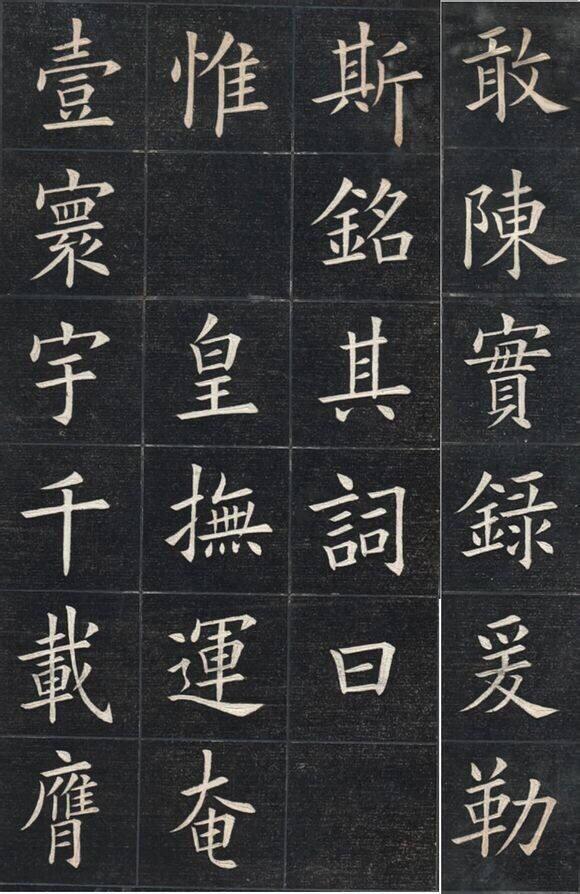 敢陳實錄爰勒
斯銘其詞曰
惟皇撫運奄
壹寰宇千載膺